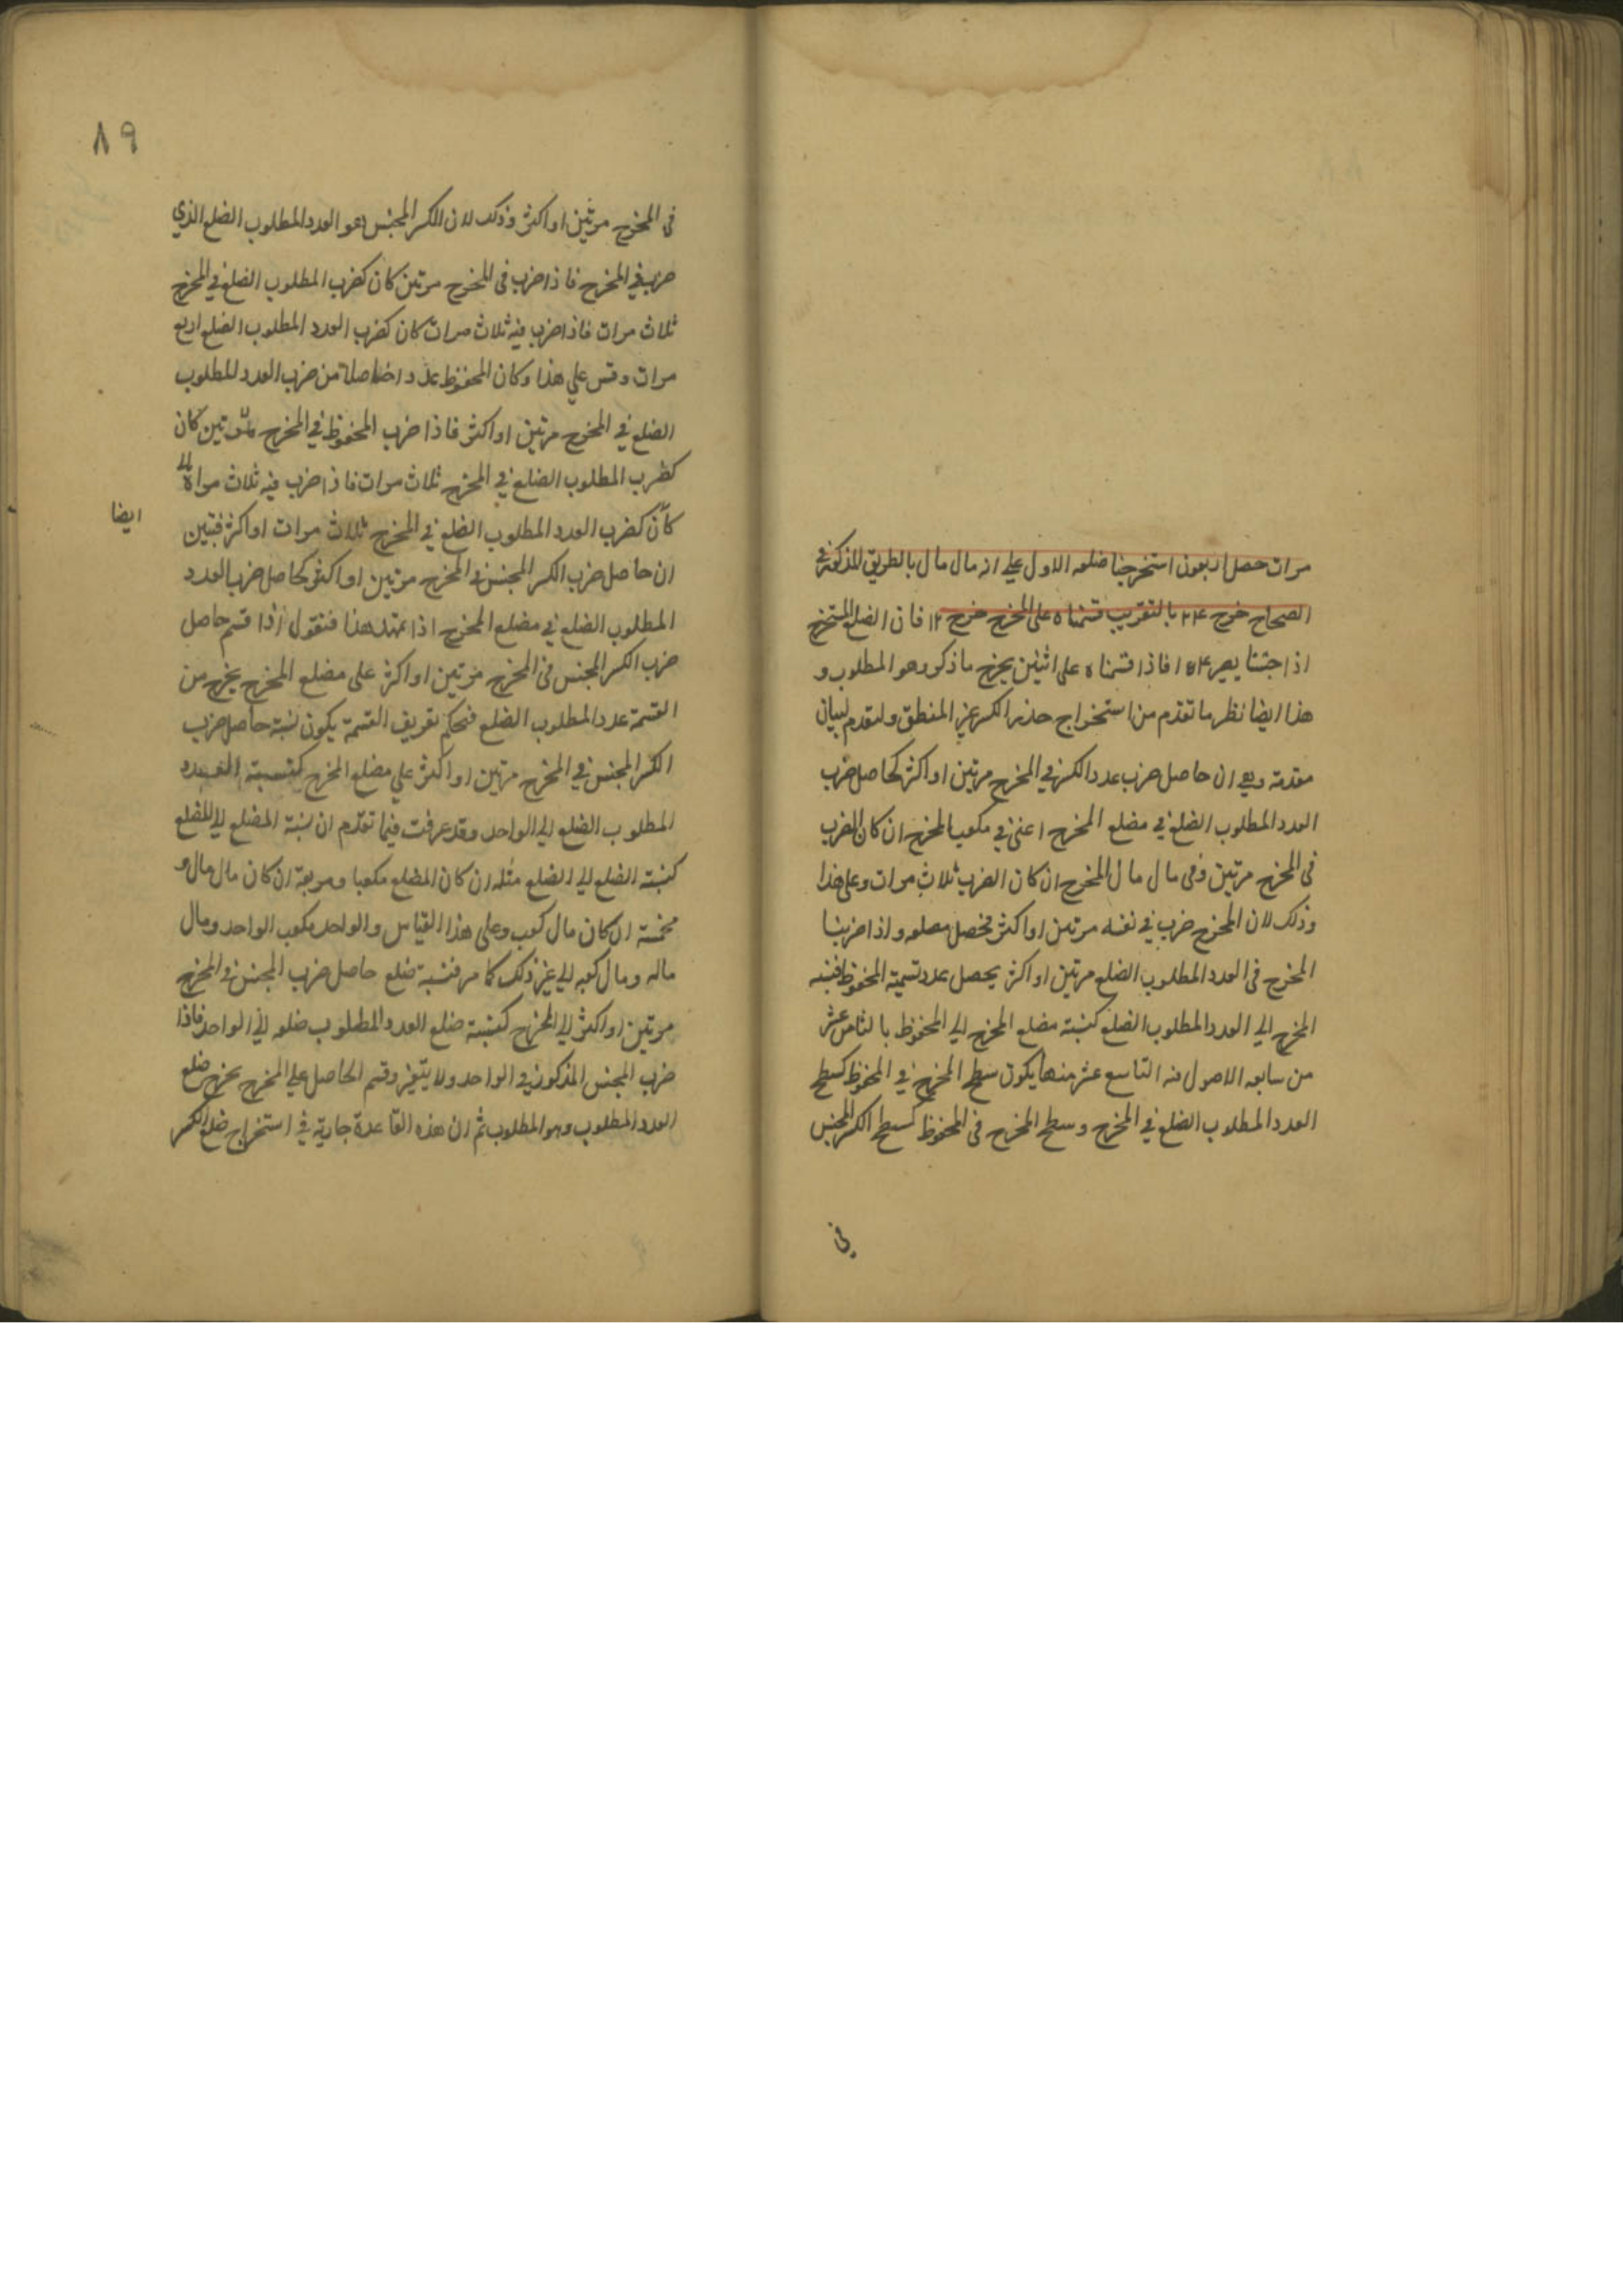 مرات حصل اربعون استخرجنا ضلعه الاول علي انه مال مال بالطريق المذكور في
الصحاح خرج ٢٤ بالتقريب قسمناه على المخرج خرج ١٢ فان الضلع المستخرج
اذا جنسنا يصير فاذا قسمناه على اثنين يخرج ما ذكر وهو المطلوب و
هذا ايضا نظير ما تقدم من استخراج جذر الكسر غير المنطق ولنقدم لبيان
مقدمة وهي ان حاصل ضرب عدد الكسر في المخرج مرتين او اكثر كحاصل ضرب
العدد المطلوب الضلع في مضلع المخرج اعني في مكعب المخرج ان كان الضرب
في المخرج مرتين وفي مال مال المخرج ان كان الضرب ثلاث مرات وعلى هذا
وذلك لان المخرج ضرب في نفسه مرتين او اكثر فحصل مضلعه واذا ضربنا
المخرج في العدد المطلوب الضلع مرتين او اكثر يحصل عدد تسمية المحفوظ فنسبة
المخرج الي العدد المطلوب الضلع كنسبة مضلع المخرج الي المحفوظ بالثامن عشر
من سابعه الاصول فبه التاسع عشر منها يكون سطح المخرج في المحفوظ كسطح
العدد المطلوب الضلع في المخرج وسطح المخرج في المحفوظ كسطح الكسر المجنس
في
٨٩
في المخرج مرتين او اكثر وذلك لان الكسر المجنس هو العدد المطلوب الضلع الذي
ضرب في المخرج فاذا ضرب في المخرج مرتين كان كضرب المطلوب الضلع في المخرج
ثلاث مرات فاذا ضرب فيه ثلاث مرات كان كضرب العدد المطلوب الضلع اربع
مرات وقس علي هذا وكان المحفوظ عددا حاصلا من ضرب العدد المطلوب
الضلع في المخرج مرتين او اكثر فاذا ضرب المحفوظ في المخرج مرتين كان
كضرب المطلوب الضلع في المخرج ثلاث مرات فاذا ضرب فيه ثلاث مرات
ايضا
كان كضرب العدد المطلوب الضلع في المخرج ثلاث مرات او اكثر فتبين
ان حاصل ضرب الكسر المجنس في المخرج مرتين او اكثر كحاصل ضرب العدد
المطلوب الضلع في مضلع المخرج اذا تمهد هذا فنقول اذا قسم حاصل
ضرب الكسر المجنس في المخرج مرتين او اكثر على مضلع المخرج يخرج من
القسمة عدد المطلوب الضلع فبحكم تعريف القسمة يكون نسبة حاصل ضرب
الكسر المجنس في المخرج مرتين او اكثر علي مضلع المخرج كنسبة العدد
المطلوب الضلع الي الواحد وقد عرفت فيما تقدم ان نسبة المضلع الي المضلع
كنسبة الضلع الي الضلع مثله ان كان المضلع مكعبا ومربعة ان كان مال مال و
مخمسة ان كان مال كعب وعلى هذا القياس والواحد مكعب الواحد ومال
ماله ومال كعبه الي غير ذلك كما مر فنسبة ضلع حاصل ضرب المجنس في المخرج
مرتين او اكثر الي المخرج كنسبة ضلع العدد المطلوب ضلعه الي الواحد فاذا
ضرب المجنس المذكور في الواحد ولا يتغير وقسم الحاصل علي المخرج يخرج ضلع
العدد المطلوب وهو المطلوب ثم ان هذه القاعدة جارية في استخراج ضلع الكسر